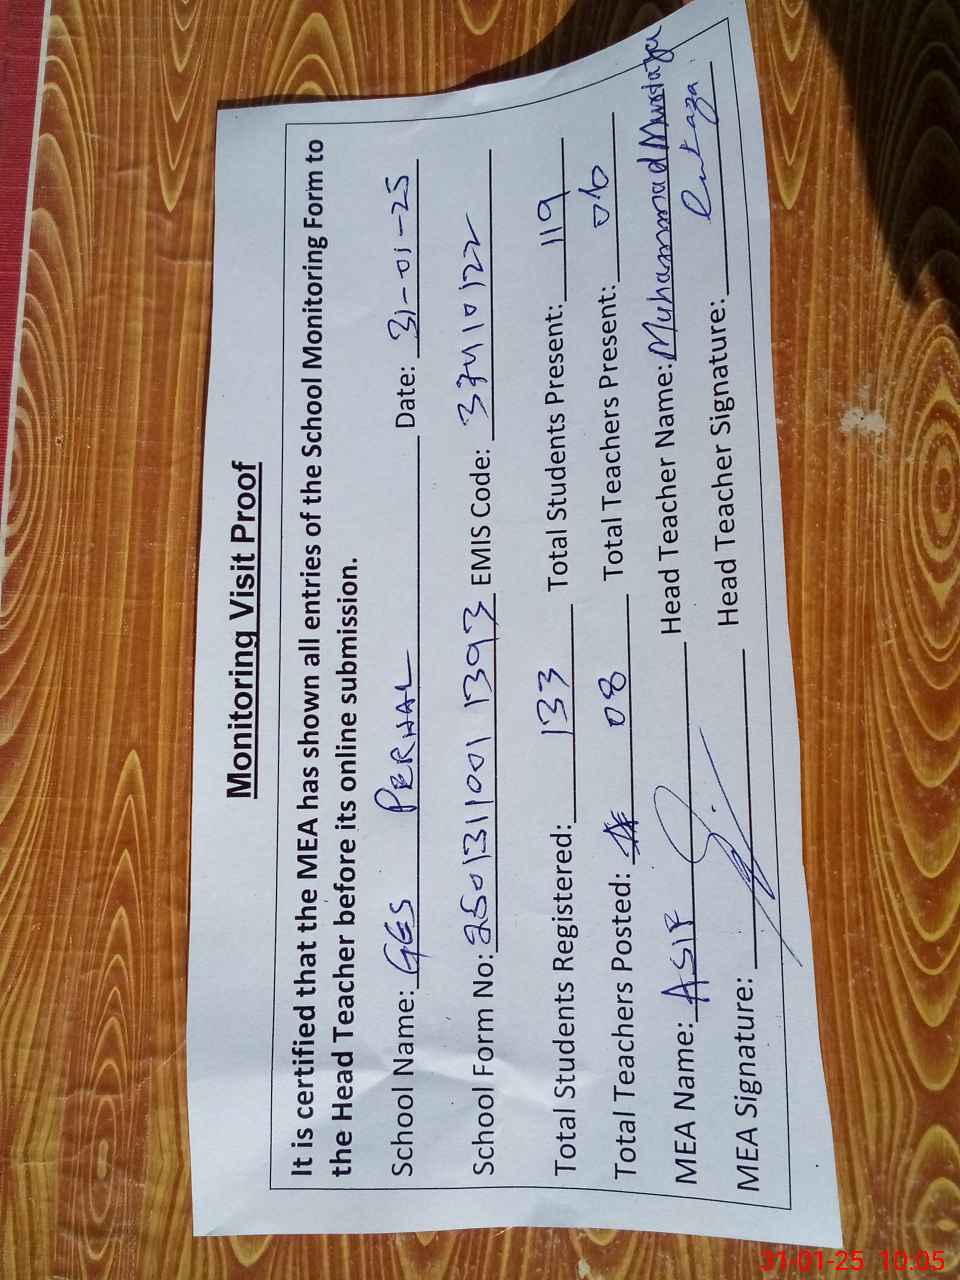 Monitoring Visit Proof
It is certified that the MEA has shown all entries of the School Monitoring Form to
the Head Teacher before its online submission.
School Name: GES PERHAL Date: 31-01-25
School Form No: 2501311001 1393 EMIS Code: 37410122
Total Students Registered: 133 Total Students Present: 119
Total Teachers Posted: 08 Total Teachers Present: 06
MEA Name: ASIF Head Teacher Name: Muhammad Murtaza
MEA Signature: Head Teacher Signature: Murtaza
31-01-25 10:05